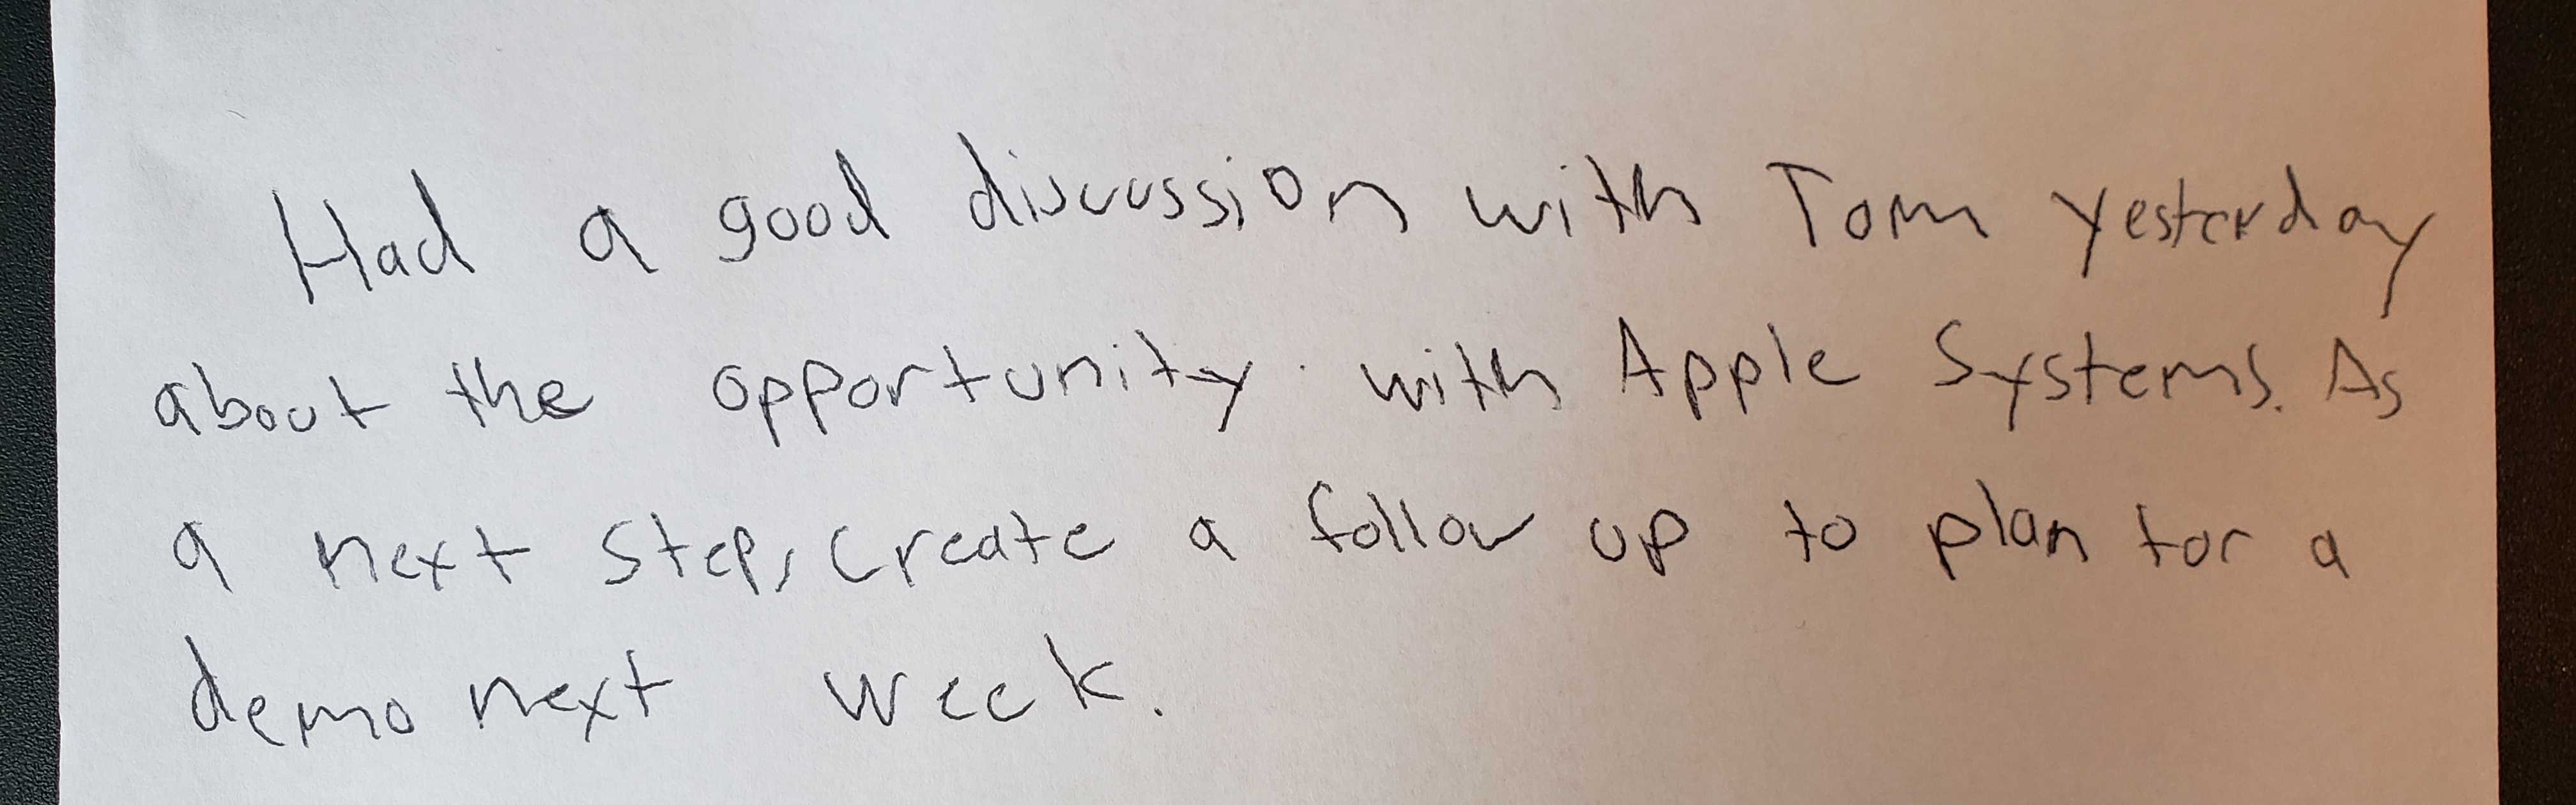 Had a good discussion with Tom yesterday
about the opportunity with Apple Systems. As
a next step, create a follow up to plan for a
demo next week.